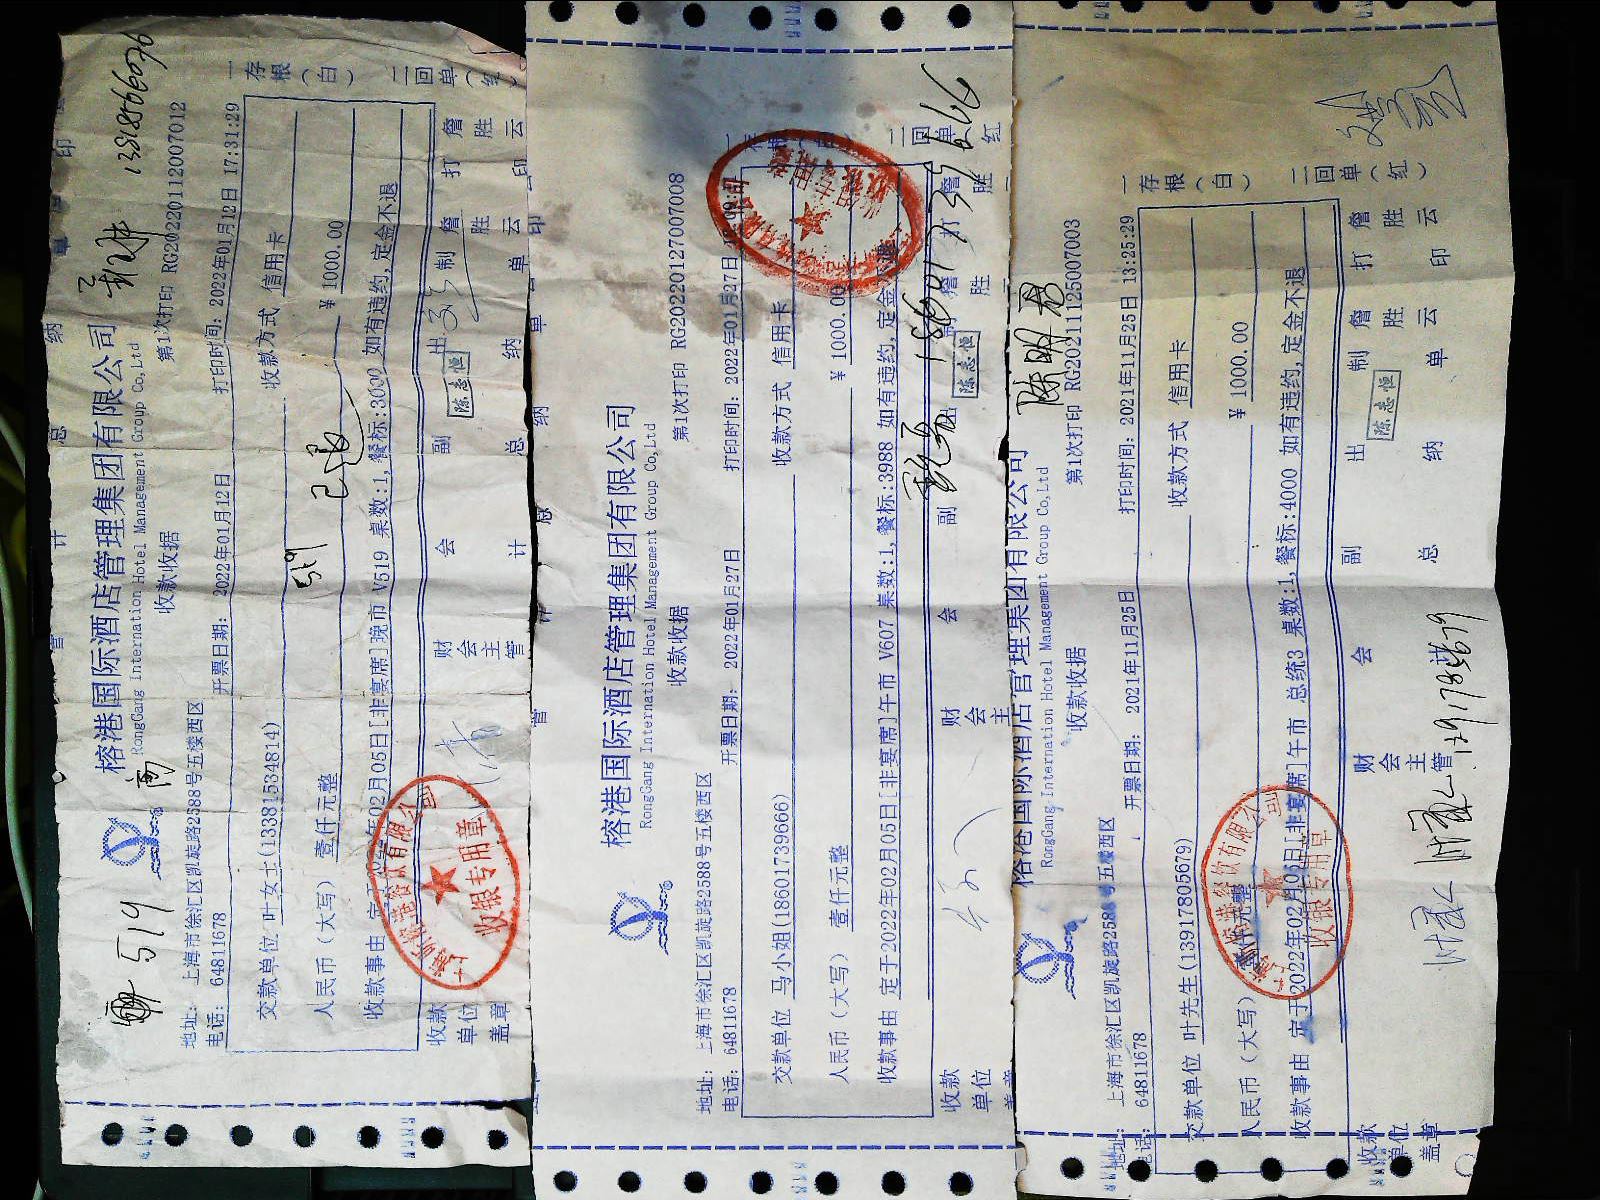 榕港国际酒店管理集团有限公司
RongGang Internation Hotel Management Group Co,Ltd
收款收据
第1次打印 RG20220112007012
519
13818866076
地址: 上海市徐汇区凯旋路2388号五楼西区
电话: 64811678
开票日期: 2022年01月12日
打印时间: 2022年01月12日 17:31:29
交款单位 叶女士(13381534814)
收款方式 信用卡
519
人民币(大写) 壹仟元整
￥ 1000.00
已退
收款事由 定于2022年02月05日[非宴席]晚市 V519 桌数:1,餐标:3000 如有违约,定金不退
一存根(白)
二回单(红)
收款单位盖章
财会主管
会计
副总
出纳
制单
詹胜云
打印
詹胜云
陈志恒
收银专用章
榕港国际酒店管理集团有限公司
RongGang Internation Hotel Management Group Co,Ltd
收款收据
第1次打印 RG20220127007008
地址: 上海市徐汇区凯旋路2588号五楼西区
电话: 64811678
开票日期: 2022年01月27日
打印时间: 2022年01月27日
交款单位 马小姐(18601739666)
收款方式 信用卡
人民币(大写) 壹仟元整
￥ 1000.00
收款事由 定于2022年02月05日[非宴席]午市 V607 桌数:1,餐标:3988 如有违约,定金不退
二回单(红
收款单位
财会主
会
副
陈志恒
榕港国际酒店管理集团有限公司
RongGang Internation Hotel Management Group Co,Ltd
收款收据
第1次打印 RG20211125007003
地址: 上海市徐汇区凯旋路2588号五楼西区
电话: 64811678
开票日期: 2021年11月25日
打印时间: 2021年11月25日 13:25:29
交款单位 叶先生(13917805679)
收款方式 信用卡
人民币(大写) 壹仟元整
￥ 1000.00
收款事由 定于2022年02月05日[非宴席]午市 总统3 桌数:1,餐标:4000 如有违约,定金不退
一存根(白)
二回单(红)
收款单位盖章
财会主管
会
副总
出纳
制单
詹胜云
打印
詹胜云
陈志恒
收银专用章